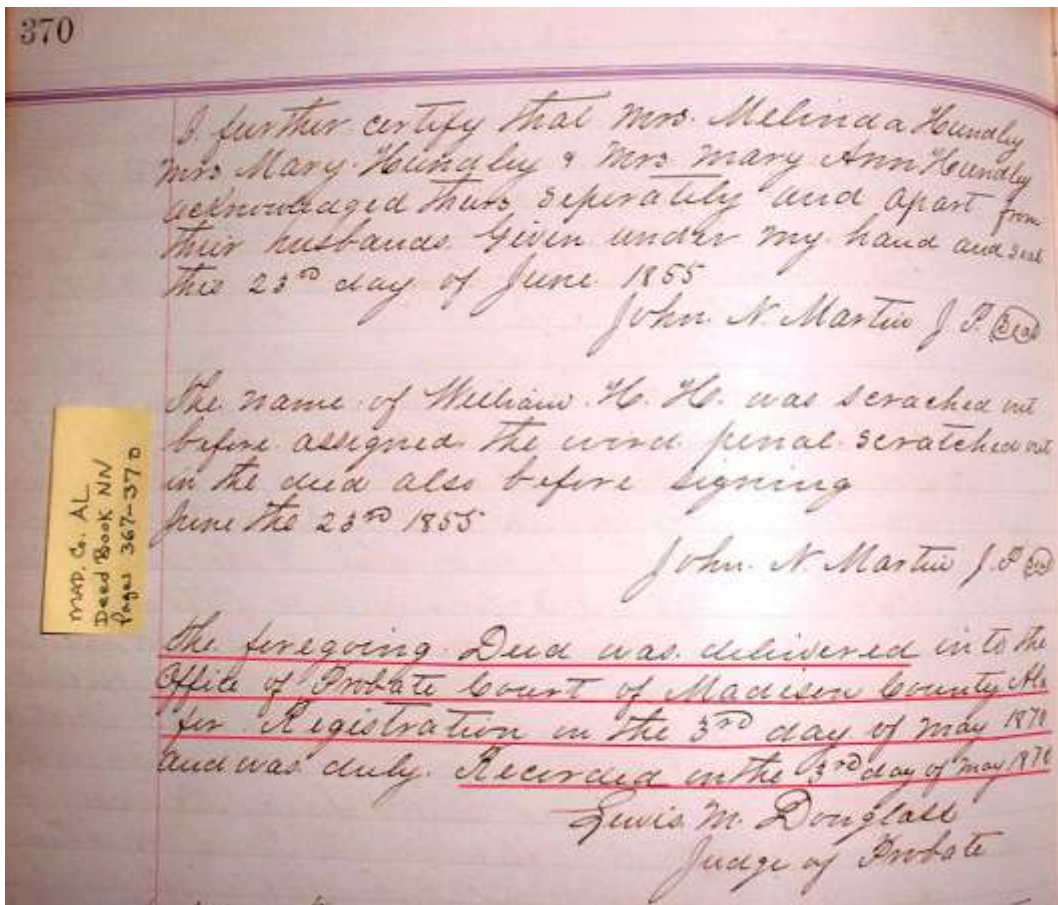 370
I further certify that Mrs. Melinda Hundley
Mrs Mary Hundley & Mrs Mary Ann Hundley
acknowledged thairs seperately and apart from
their husbands. Given under my hand and seal
this 23rd day of June 1855
John. N. Martin J P. Seal
The name of William. H. H. was scrached out
before assigned the word penal scratched out
in the deed also before signing
June the 23rd 1855
John. N. Martin J. P Seal
MAD. Co. AL
Deed Book NN
Pages 367-370
The foregoing Deed was delivered into the
Office of Probate Court of Madison County Ala
for Registration on the 3rd day of May 1870
and was duly. Recorded on the 3rd day of May 1870
Lewis. M. Douglass
Judge of Probate